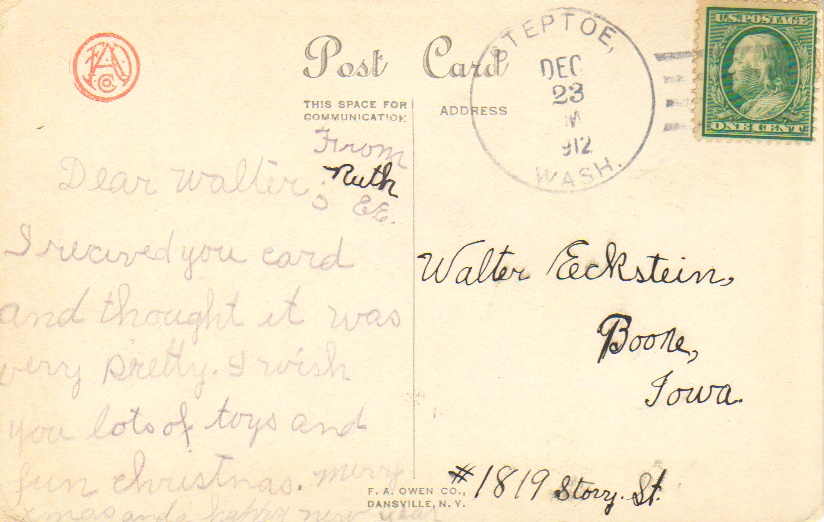 FAOCo
Post Card
THIS SPACE FOR
COMMUNICATION
ADDRESS
STEPTOE,
DEC
23
M
912
WASH.
U.S. POSTAGE
ONE CENT
From
Ruth
E.E.
Dear Walter;
I recived you card
and thought it was
very pretty. I wish
you lots of toys and
fun christnas. merry
xmas and a happy new year
Walter Eckstein,
Boone,
Iowa.
#1819 Story. St.
F. A. OWEN CO.,
DANSVILLE, N. Y.